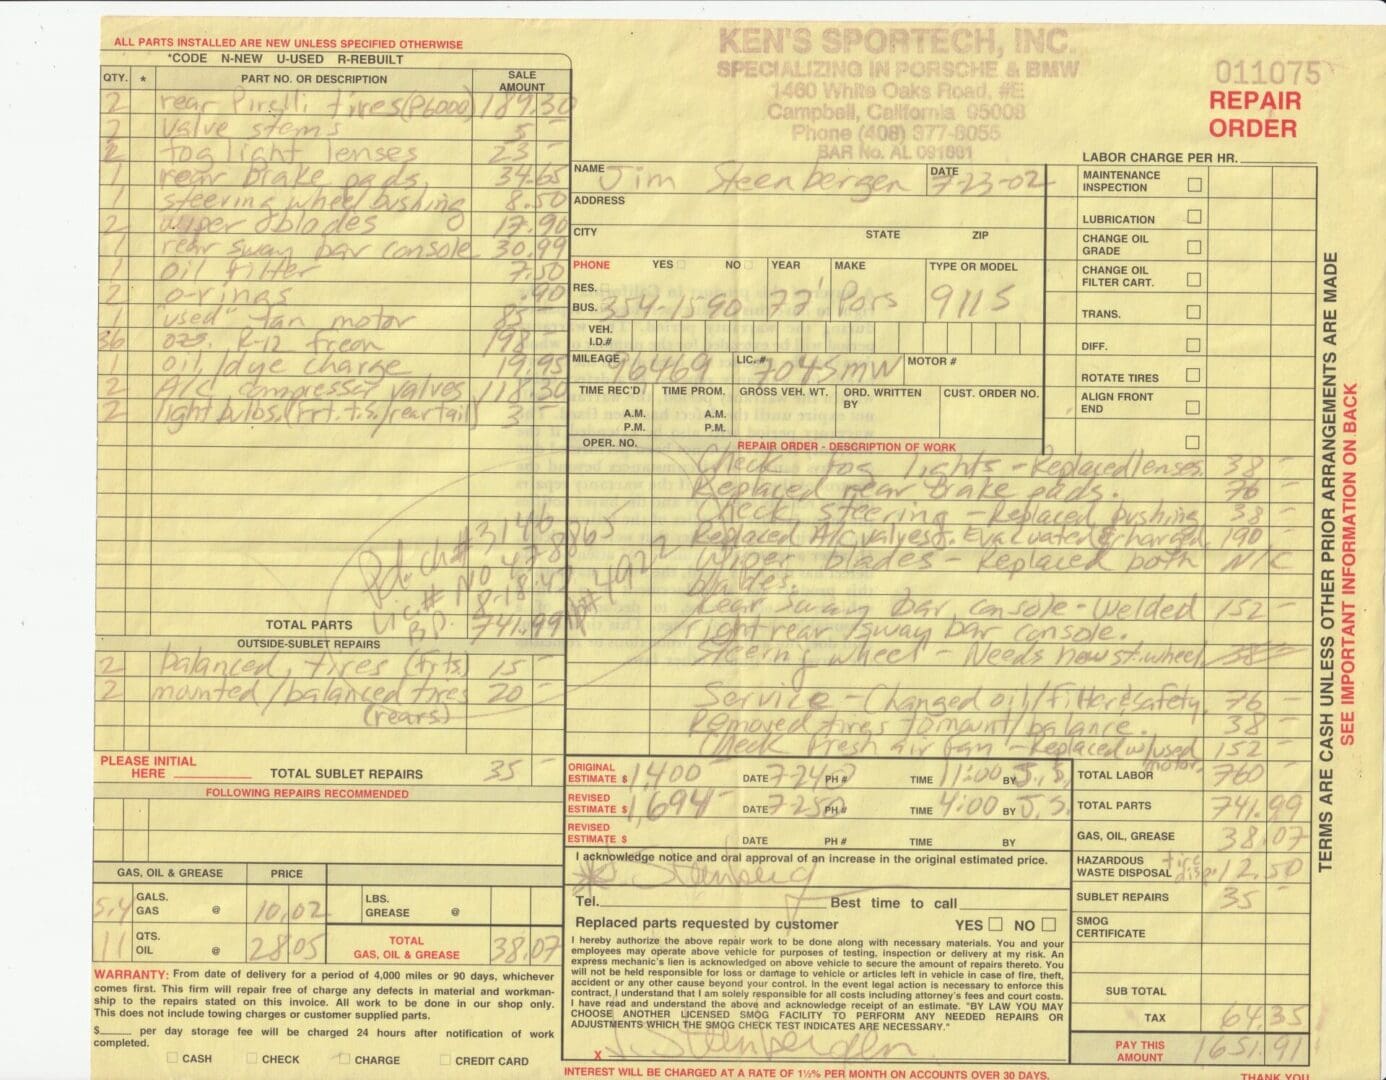 ALL PARTS INSTALLED ARE NEW UNLESS SPECIFIED OTHERWISE
*CODE N-NEW U-USED R-REBUILT
QTY. * PART NO. OR DESCRIPTION SALE AMOUNT
2 rear Pirelli tires (P6000) 189.30
2 valve stems 5 -
2 fog light lenses 23 -
1 rear brake pads. 34.65
1 steering wheel bushing 8.50
2 wiper blades 17.90
1 rear sway bar console 30.99
1 oil filter 7.50
2 o-rings .90
1 "used" fan motor 85 -
36 ozs. R-12 freon 198 -
1 oil/dye charge 19.95
2 A/C compressor valves 118.30
2 light bulbs. (frt. t.s/rear tail) 3 -
Pd. ch# 3146
Lic.# NO 478865
TOTAL PARTS 741.99
OUTSIDE-SUBLET REPAIRS
2 balanced tires (frts) 15 -
2 mounted/balanced tires 20 -
(rears)
PLEASE INITIAL HERE
TOTAL SUBLET REPAIRS 35 -
FOLLOWING REPAIRS RECOMMENDED
GAS, OIL & GREASE PRICE
5.4 GALS. GAS @ 10.02 LBS. GREASE @
11 QTS. OIL @ 28.05 TOTAL GAS, OIL & GREASE 38.07
WARRANTY: From date of delivery for a period of 4,000 miles or 90 days, whichever
comes first. This firm will repair free of charge any defects in material and workman-
ship to the repairs stated on this invoice. All work to be done in our shop only.
This does not include towing charges or customer supplied parts.
$_____ per day storage fee will be charged 24 hours after notification of work
completed.
CASH CHECK CHARGE CREDIT CARD
KEN'S SPORTECH, INC.
SPECIALIZING IN PORSCHE & BMW
1460 White Oaks Road, #E
Campbell, California 95008
Phone (408) 377-8055
BAR No. AL 091681
011075
REPAIR
ORDER
NAME Jim Steenbergen DATE 7-23-02
ADDRESS
CITY STATE ZIP
PHONE YES NO YEAR MAKE TYPE OR MODEL
RES.
BUS. 354-1590 77' Pors 911S
VEH. I.D.#
MILEAGE 96469 LIC. # 704SMW MOTOR #
TIME REC'D TIME PROM. GROSS VEH. WT. ORD. WRITTEN BY CUST. ORDER NO.
A.M. A.M.
P.M. P.M.
OPER. NO. REPAIR ORDER - DESCRIPTION OF WORK
Check fog lights - Replaced lenses. 38 -
Replaced rear brake pads. 76 -
Check steering - Replaced bushing 38 -
Replaced A/C valves. Evacuated & charged. 190 -
Wiper blades - Replaced both N/C
blades.
Rear sway bar console - Welded 152 -
right rear sway bar console.
Steering wheel - Needs new st. wheel 38
Service - Changed oil/filter & safety. 76 -
Removed tires to mount/balance. 38 -
Check fresh air fan - Replaced w/used 152 -
motor.
ORIGINAL ESTIMATE $ 1,400 - DATE 7-24-02 PH # TIME 11:00 BY J.S.
REVISED ESTIMATE $ 1,694 - DATE 7-25-02 PH # TIME 4:00 BY J.S.
REVISED ESTIMATE $ DATE PH # TIME BY
I acknowledge notice and oral approval of an increase in the original estimated price.
Tel. Best time to call
Replaced parts requested by customer YES NO
I hereby authorize the above repair work to be done along with necessary materials. You and your
employees may operate above vehicle for purposes of testing, inspection or delivery at my risk. An
express mechanic's lien is acknowledged on above vehicle to secure the amount of repairs thereto. You
will not be held responsible for loss or damage to vehicle or articles left in vehicle in case of fire, theft,
accident or any other cause beyond your control. In the event legal action is necessary to enforce this
contract, I understand that I am solely responsible for all costs including attorney's fees and court costs.
I have read and understand the above and acknowledge receipt of an estimate. "BY LAW YOU MAY
CHOOSE ANOTHER LICENSED SMOG FACILITY TO PERFORM ANY NEEDED REPAIRS OR
ADJUSTMENTS WHICH THE SMOG CHECK TEST INDICATES ARE NECESSARY."
X J. Steenbergen
INTEREST WILL BE CHARGED AT A RATE OF 1½% PER MONTH ON ACCOUNTS OVER 30 DAYS.
LABOR CHARGE PER HR.
MAINTENANCE INSPECTION
LUBRICATION
CHANGE OIL GRADE
CHANGE OIL FILTER CART.
TRANS.
DIFF.
ROTATE TIRES
ALIGN FRONT END
TOTAL LABOR 760 -
TOTAL PARTS 741.99
GAS, OIL, GREASE 38.07
HAZARDOUS WASTE DISPOSAL tire disp. 12.50
SUBLET REPAIRS 35 -
SMOG CERTIFICATE
SUB TOTAL
TAX 64.35
PAY THIS AMOUNT 1651.91
THANK YOU
TERMS ARE CASH UNLESS OTHER PRIOR ARRANGEMENTS ARE MADE
SEE IMPORTANT INFORMATION ON BACK